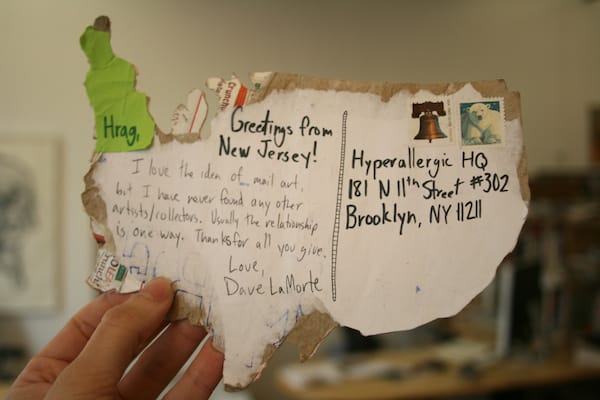 Hrag,
Greetings from
New Jersey!
I love the idea of mail art,
but I have never found any other
artists/collectors. Usually the relationship
is one way. Thanks for all you give.
Love,
Dave LaMorte
Hyperallergic HQ
181 N 11th Street #302
Brooklyn, NY 11211
Crunch